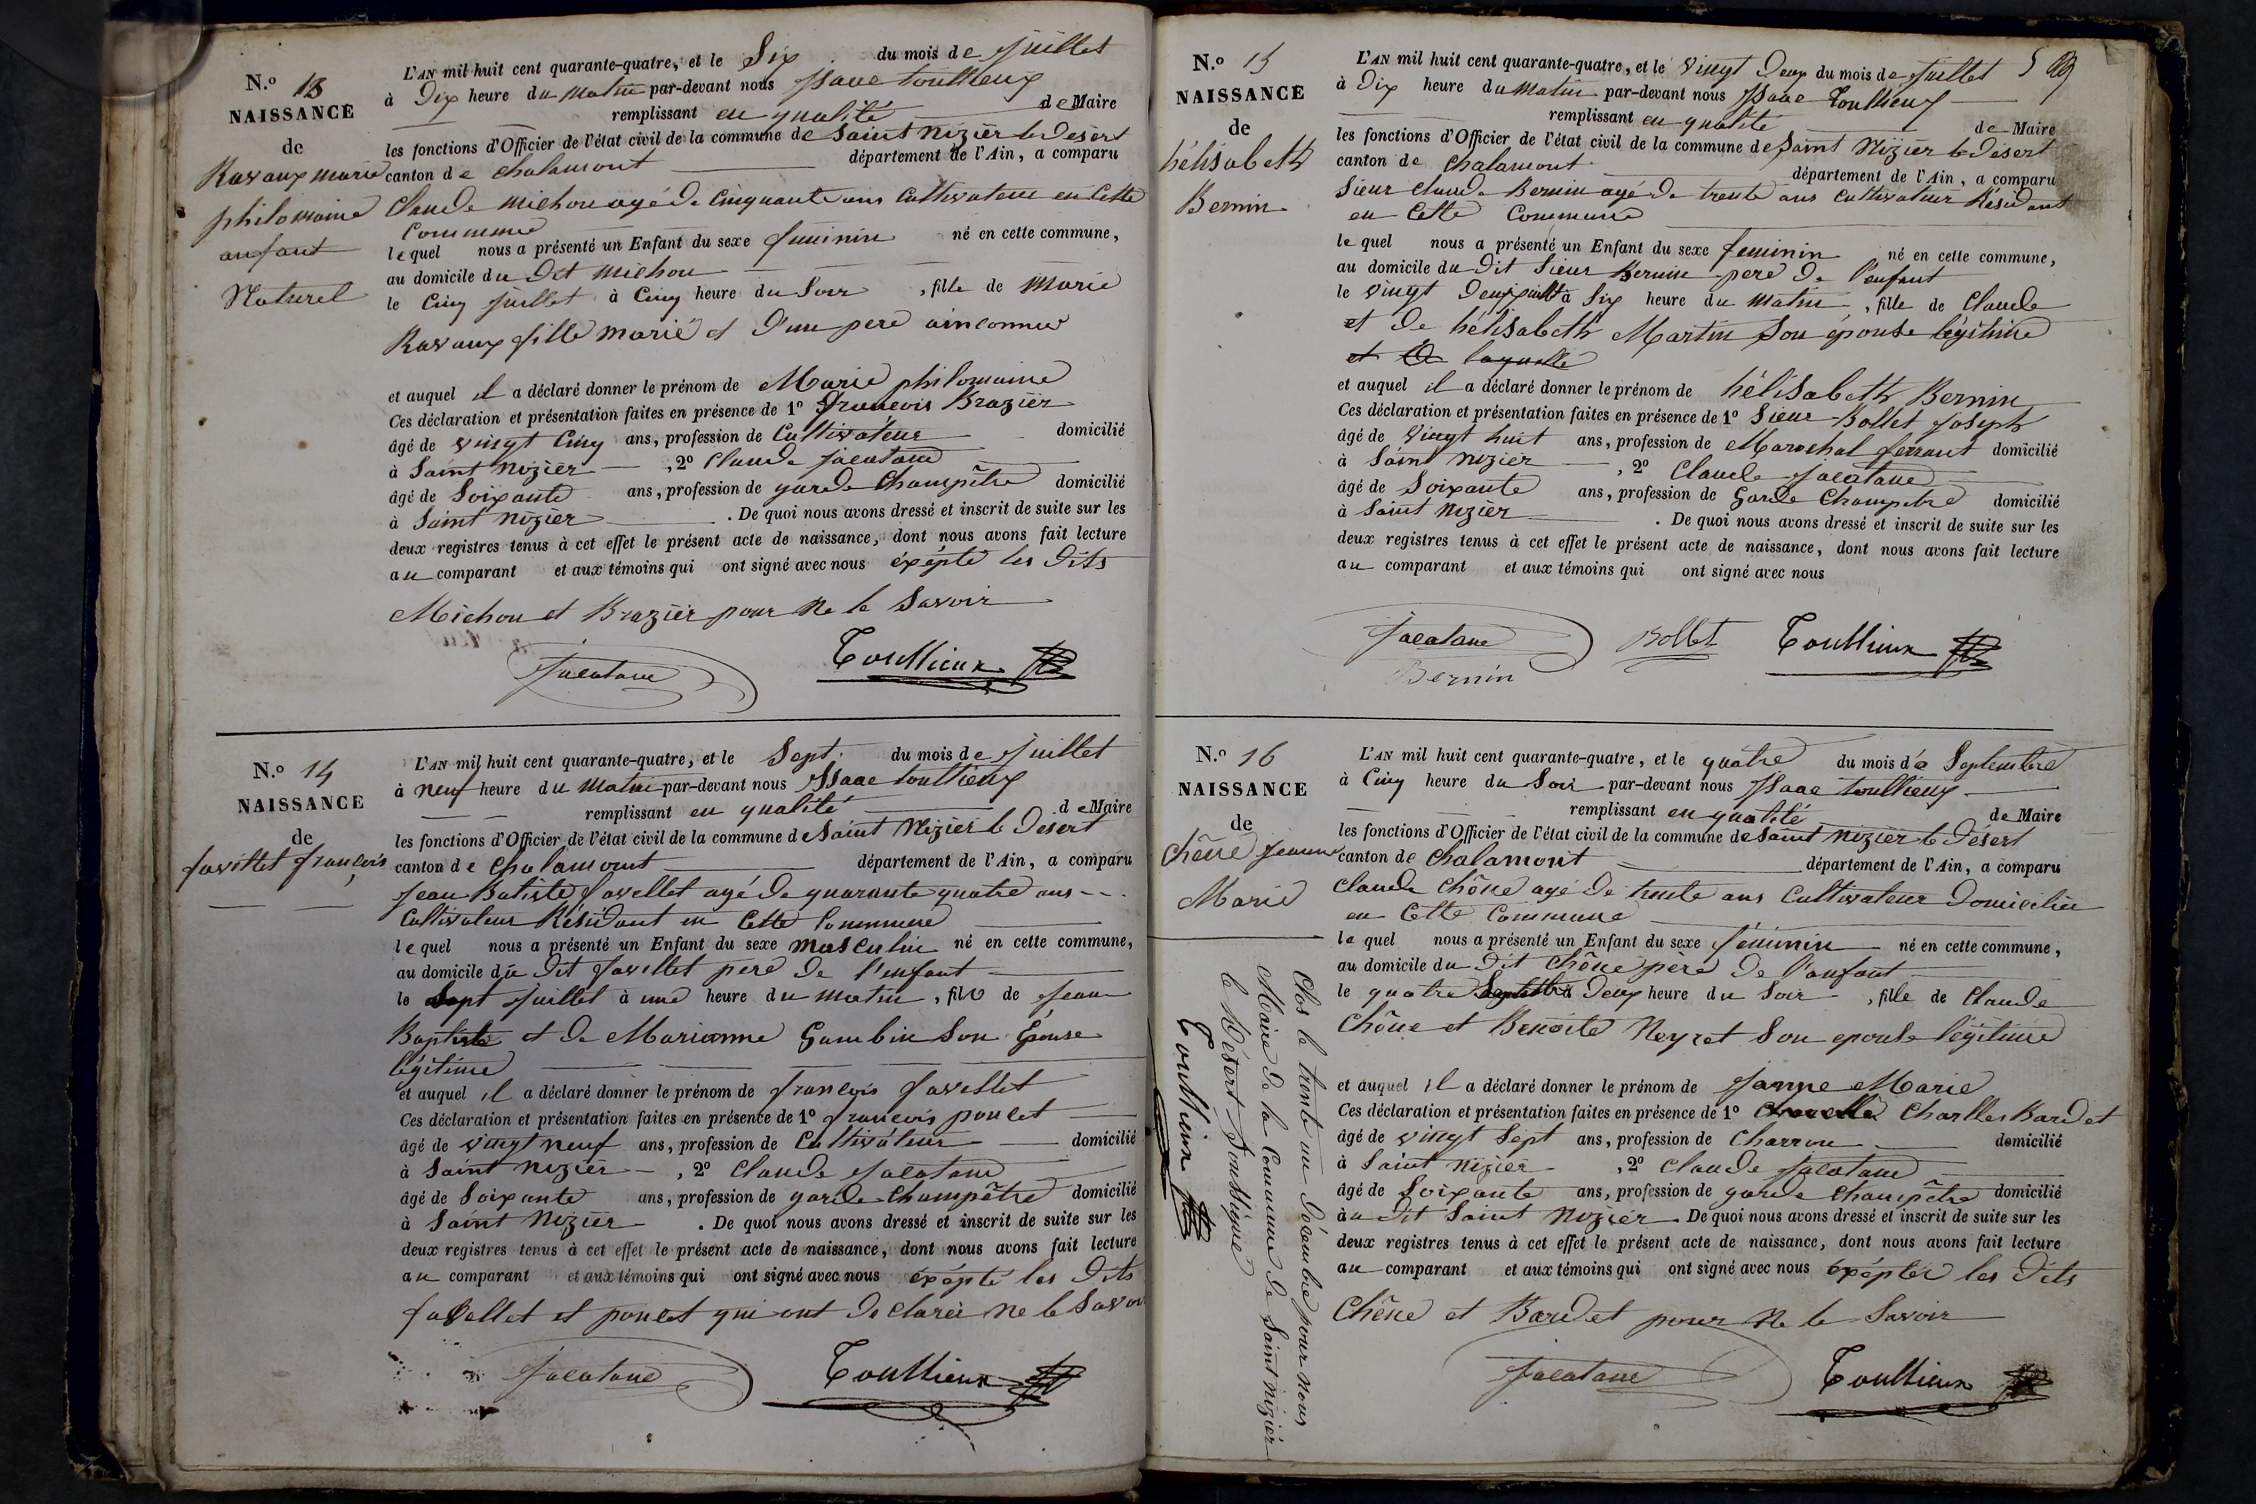 N.o 13
NAISSANCE
de
Ravaux marie
philomaine
anfant
Naturel
L'AN mil huit cent quarante-quatre, et le Six du mois de Juillet
à Dix heure du matin par-devant nous Isaac toullieux
remplissant en qualité de Maire
les fonctions d'Officier de l'état civil de la commune de Saint Nizier le Désert
canton de chalamont département de l'Ain, a comparu
Claude michon agé de Cinquante ans Cultivateur en Cette
Commune
lequel nous a présenté un Enfant du sexe feminin né en cette commune,
au domicile du Dit michon
le Cinq Juillet à Cinq heure du Soir, fille de Marie
Ravaux fille marié et D'un pere ainconnu
et auquel il a déclaré donner le prénom de Marie philomaine
Ces déclaration et présentation faites en présence de 1o francois Brazier
âgé de vingt Cinq ans, profession de Cultivateur domicilié
à Saint Nizier, 2o Claude Jacatane
âgé de Soixante ans, profession de garde Champêtre domicilié
à Saint Nizier. De quoi nous avons dressé et inscrit de suite sur les
deux registres tenus à cet effet le présent acte de naissance, dont nous avons fait lecture
au comparant et aux témoins qui ont signé avec nous éxépté les Dits
Michon et Brazier pour Ne le Savoir
Jacatane Toullieux
N.o 14
NAISSANCE
de
favillet françois
L'AN mil huit cent quarante-quatre, et le Sept du mois de Juillet
à neuf heure du Matin par-devant nous Isaac toullieux
remplissant en qualité de Maire
les fonctions d'Officier de l'état civil de la commune de Saint Nizier le Désert
canton de chalamont département de l'Ain, a comparu
Jean Batiste favellet agé de quarante quatre ans
Cultivateur Résidant en Cette Commune
lequel nous a présenté un Enfant du sexe masculin né en cette commune,
au domicile du Dit favillet pere de l'enfant
le Sept Juillet à une heure du matin, fils de Jean
Baptiste et de Marianne Gambin Son Épouse
légitime
et auquel il a déclaré donner le prénom de françois favellet
Ces déclaration et présentation faites en présence de 1o francois poncet
âgé de vingt neuf ans, profession de Cultivateur domicilié
à Saint Nizier, 2o Claude Jacatane
âgé de Soixante ans, profession de garde Champêtre domicilié
à Saint Nizier. De quoi nous avons dressé et inscrit de suite sur les
deux registres tenus à cet effet le présent acte de naissance, dont nous avons fait lecture
au comparant et aux témoins qui ont signé avec nous éxépté les Dits
favellet et poncet qui ont Déclaréé Ne le Savoir
Jacatane Toullieux
N.o 15
NAISSANCE
de
hélisabeth
Bernin
L'AN mil huit cent quarante-quatre, et le vingt Deux du mois de Juillet
à Dix heure du Matin par-devant nous Isaac Toullieux
remplissant en qualité de Maire
les fonctions d'Officier de l'état civil de la commune de Saint Nizier le Désert
canton de chalamont département de l'Ain, a comparu
Sieur Claude Bernin agé de trente ans Cultivateur Résidant
en Cette Commune
lequel nous a présenté un Enfant du sexe feminin né en cette commune,
au domicile du Dit Sieur Bernin pere de l'enfant
le vingt Deux Juillet à Six heure du matin, fille de Claude
et de hélisabeth Martin Son épouse légitime
et laquelle
et auquel il a déclaré donner le prénom de hélisabeth Bernin
Ces déclaration et présentation faites en présence de 1o Sieur Bollet Joseph
âgé de vingt huit ans, profession de Marechal ferrant domicilié
à Saint Nizier, 2o Claude Jacatane
âgé de Soixante ans, profession de Garde Champetre domicilié
à Saint Nizier. De quoi nous avons dressé et inscrit de suite sur les
deux registres tenus à cet effet le présent acte de naissance, dont nous avons fait lecture
au comparant et aux témoins qui ont signé avec nous
Jacatane Bollet Toullieux
Bernin
N.o 16
NAISSANCE
de
Chêne Jeanne
Marie
L'AN mil huit cent quarante-quatre, et le quatre du mois de Septembre
à Cinq heure du Soir par-devant nous Isaac toullieux
remplissant en qualité de Maire
les fonctions d'Officier de l'état civil de la commune de Saint Nizier le Désert
canton de chalamont département de l'Ain, a comparu
Claude Chêne agé de trente ans Cultivateur Domicilier
en Cette Commune
lequel nous a présenté un Enfant du sexe féminin né en cette commune,
au domicile du Dit Chêne père de l'anfant
le quatre Septembre à Deux heure du Soir, fille de Claude
Chêne et Benoite Neyret Son epouse légitime
et auquel il a déclaré donner le prénom de Janne Marie
Ces déclaration et présentation faites en présence de 1o Charlles Bardet
âgé de vingt Sept ans, profession de Charron domicilié
à Saint Nizier, 2o Claude Jacatane
âgé de Soixante ans, profession de garde Champêtre domicilié
à au dit Saint Nizier. De quoi nous avons dressé et inscrit de suite sur les
deux registres tenus à cet effet le présent acte de naissance, dont nous avons fait lecture
au comparant et aux témoins qui ont signé avec nous éxéptér les Dits
Chêne et Bardet pour Ne le Savoir
Jacatane Toullieux
Clos le trente un Décembre pour nous
Maire de la Commune de Saint Nizier
le Désert
Toullieux